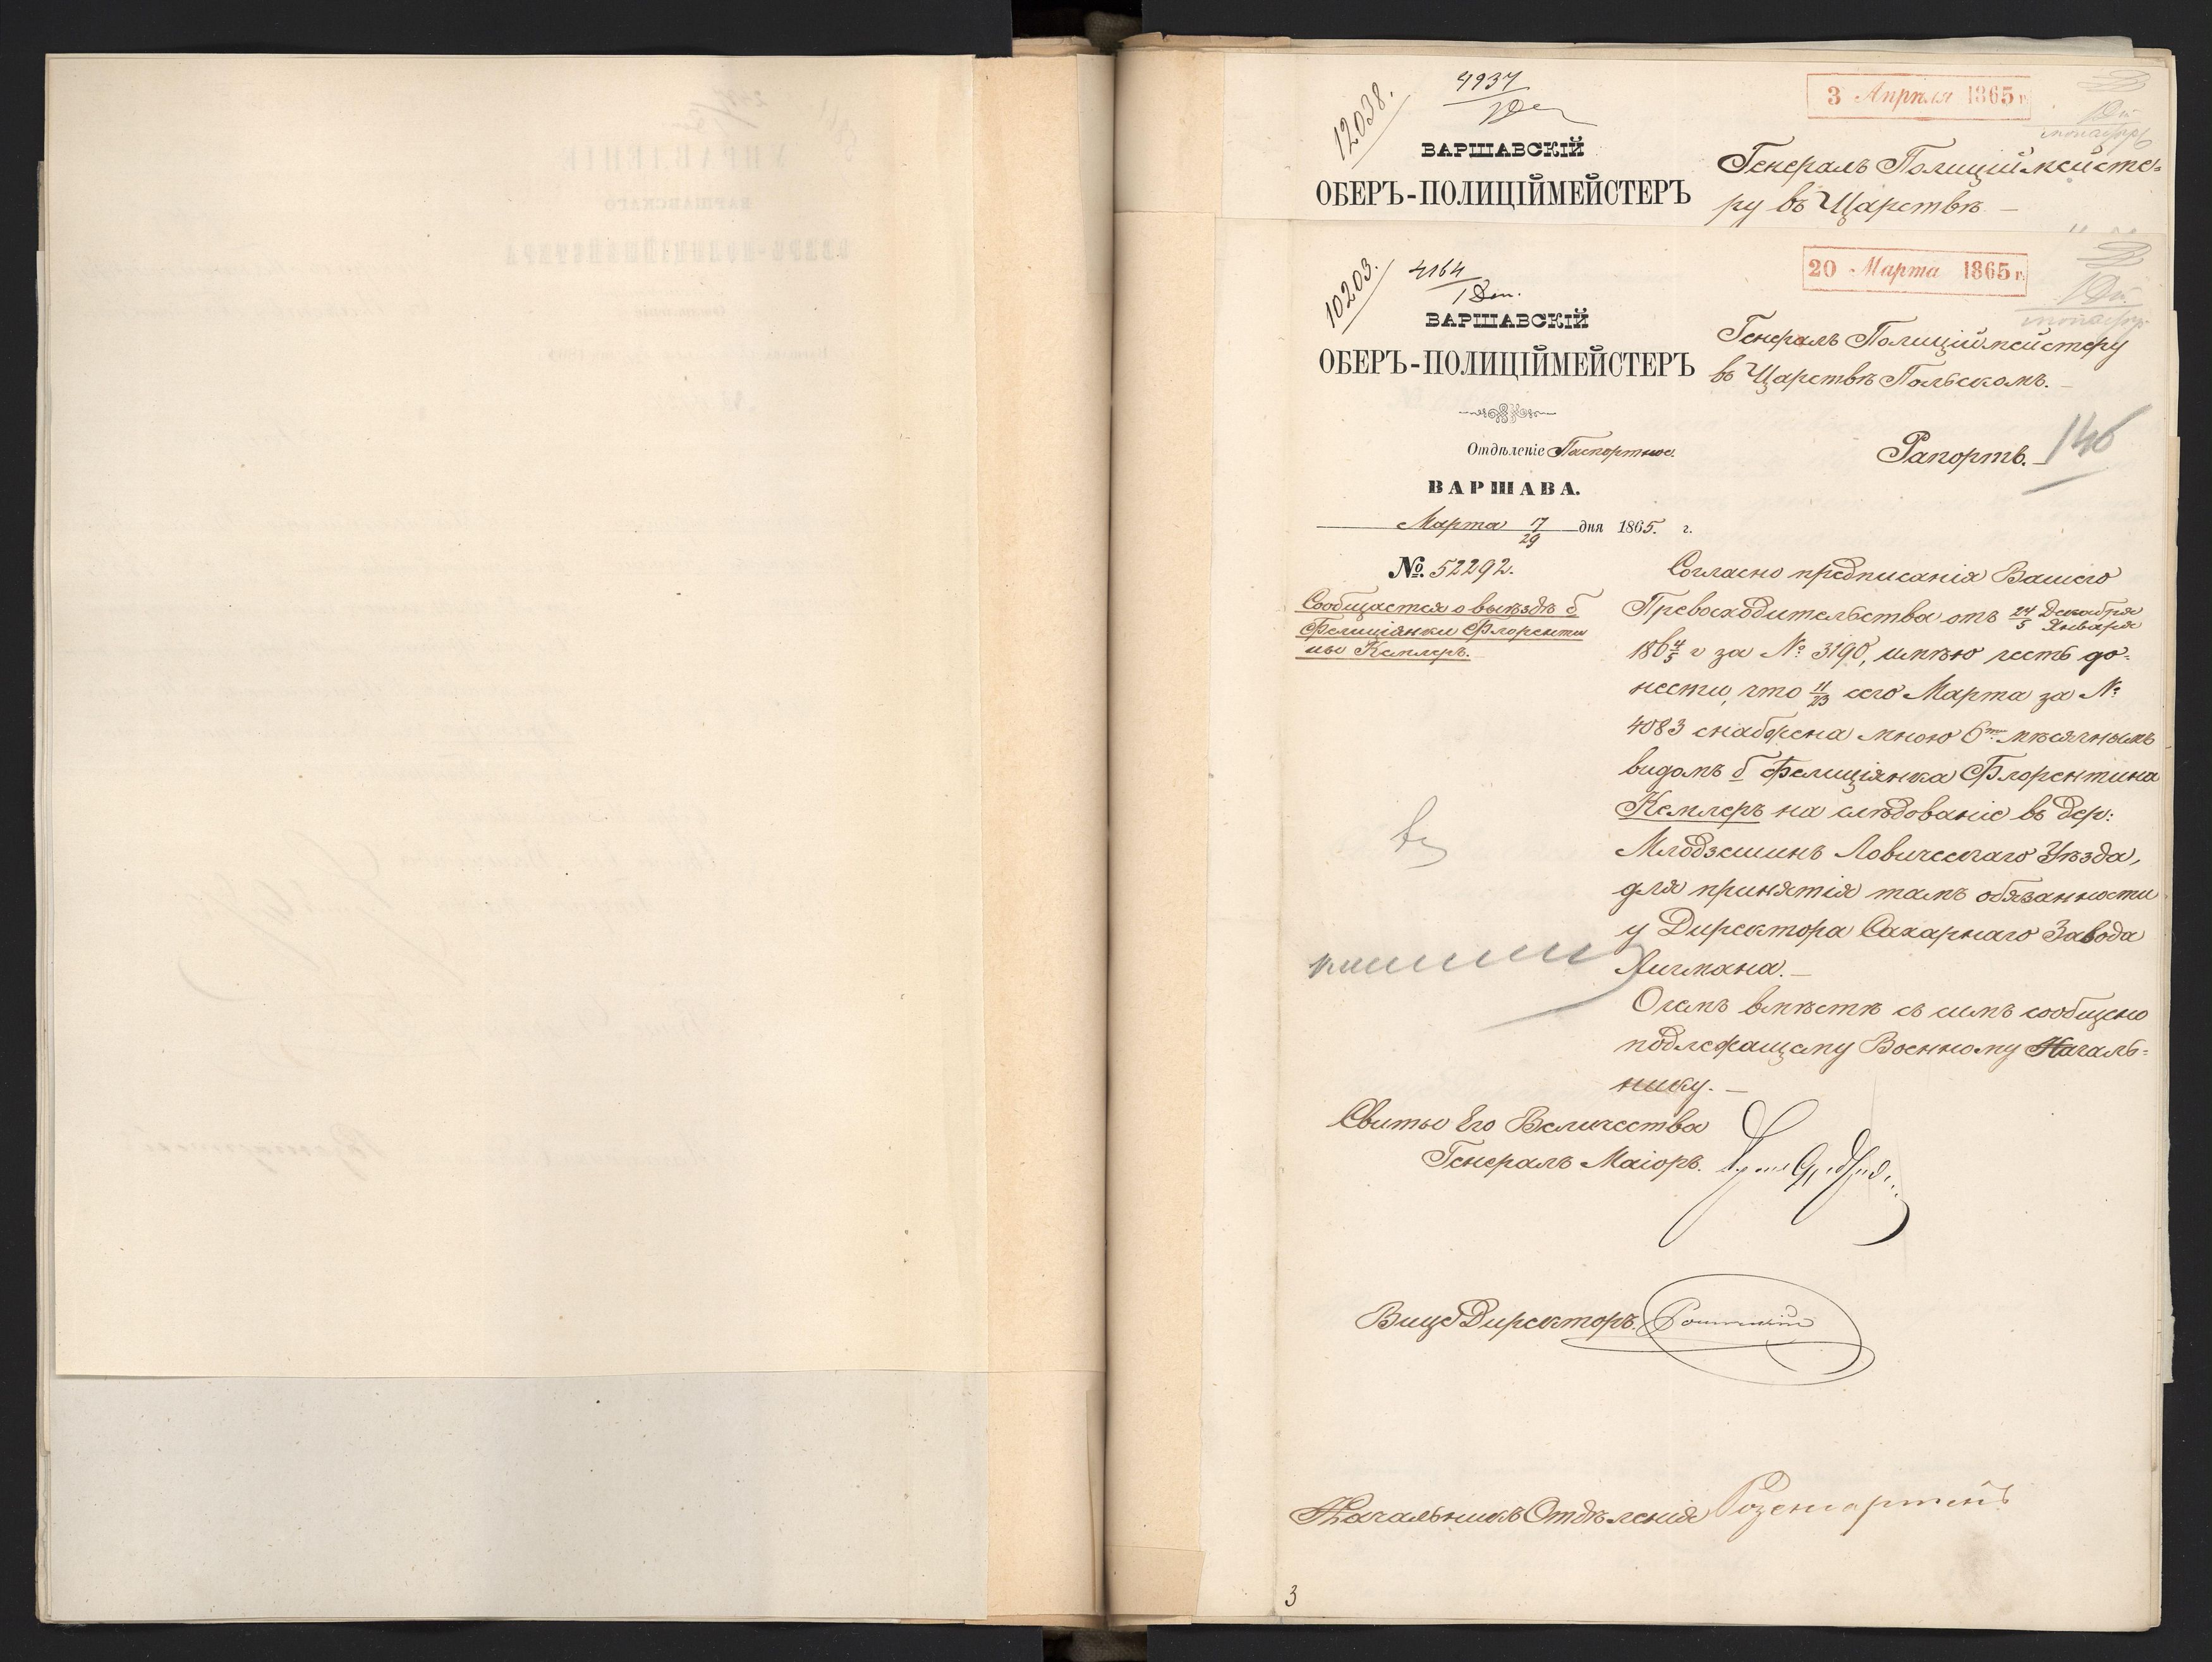 12038.
4937
3 Апрѣля 1865 г.
ВАРШАВСКІЙ
ОБЕРЪ-ПОЛИЦІЙМЕЙСТЕРЪ
Генералъ Полиціймейсте-
ру въ Царствѣ
10203.
4164
1 Деп.
20 Марта 1865 г.
ВАРШАВСКІЙ
ОБЕРЪ-ПОЛИЦІЙМЕЙСТЕРЪ
Отдѣленіе Паспортное.
ВАРШАВА.
Марта 17/29 дня 1865. г.
№ 52292.
Сообщается о выѣздѣ б
Фелиціянки Флоренти
ны Кемлеръ.
Генералъ Полиціймейстеру
въ Царствѣ Польскомъ.
Рапортъ.
146
Согласно предписанія Вашего
Превосходительства отъ 24/5 Декабря/Января
186 4/5 г за № 3190, имѣю честь до-
нести, что 11/23 сего Марта за №
4083 снабжена мною 6ти мѣсячнымъ
видомъ б Фелиціянка Флорентина
Кемлеръ на слѣдованіе въ дер:
Млодзешинъ Ловичскаго Уѣзда,
для принятія тамъ обязанности
у Директора Сахарнаго Завода
Лигмана.
О чемъ вмѣстѣ съ симъ сообщено
подлежащему Военному Началь-
нику.
Свиты Его Величества
Генералъ Маіоръ.
Вице Директоръ.
Начальникъ Отдѣленія
3